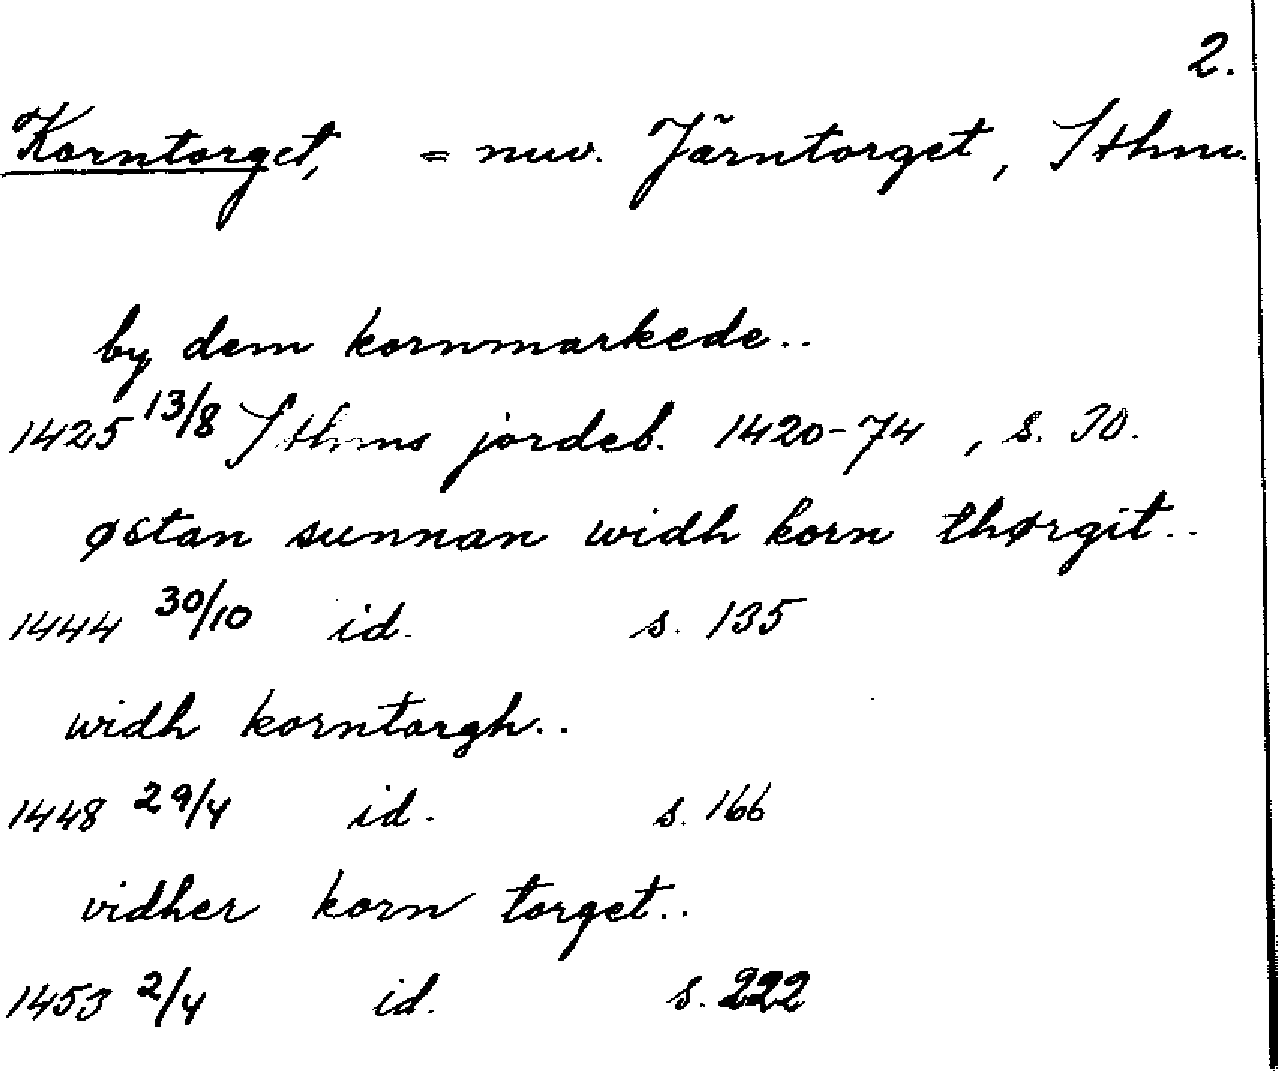 2.
Korntorget, = nuv. Järntorget, Sthm.
by dem kornmarkede..
1425 13/8 Sthms jordeb. 1420-74, s. 30.
østan sunnan widh korn thørgit..
1444 30/10 id. s. 135
widh korntorgh..
1448 29/4 id. s. 166
vidher korn torget..
1453 2/4 id. s. 222